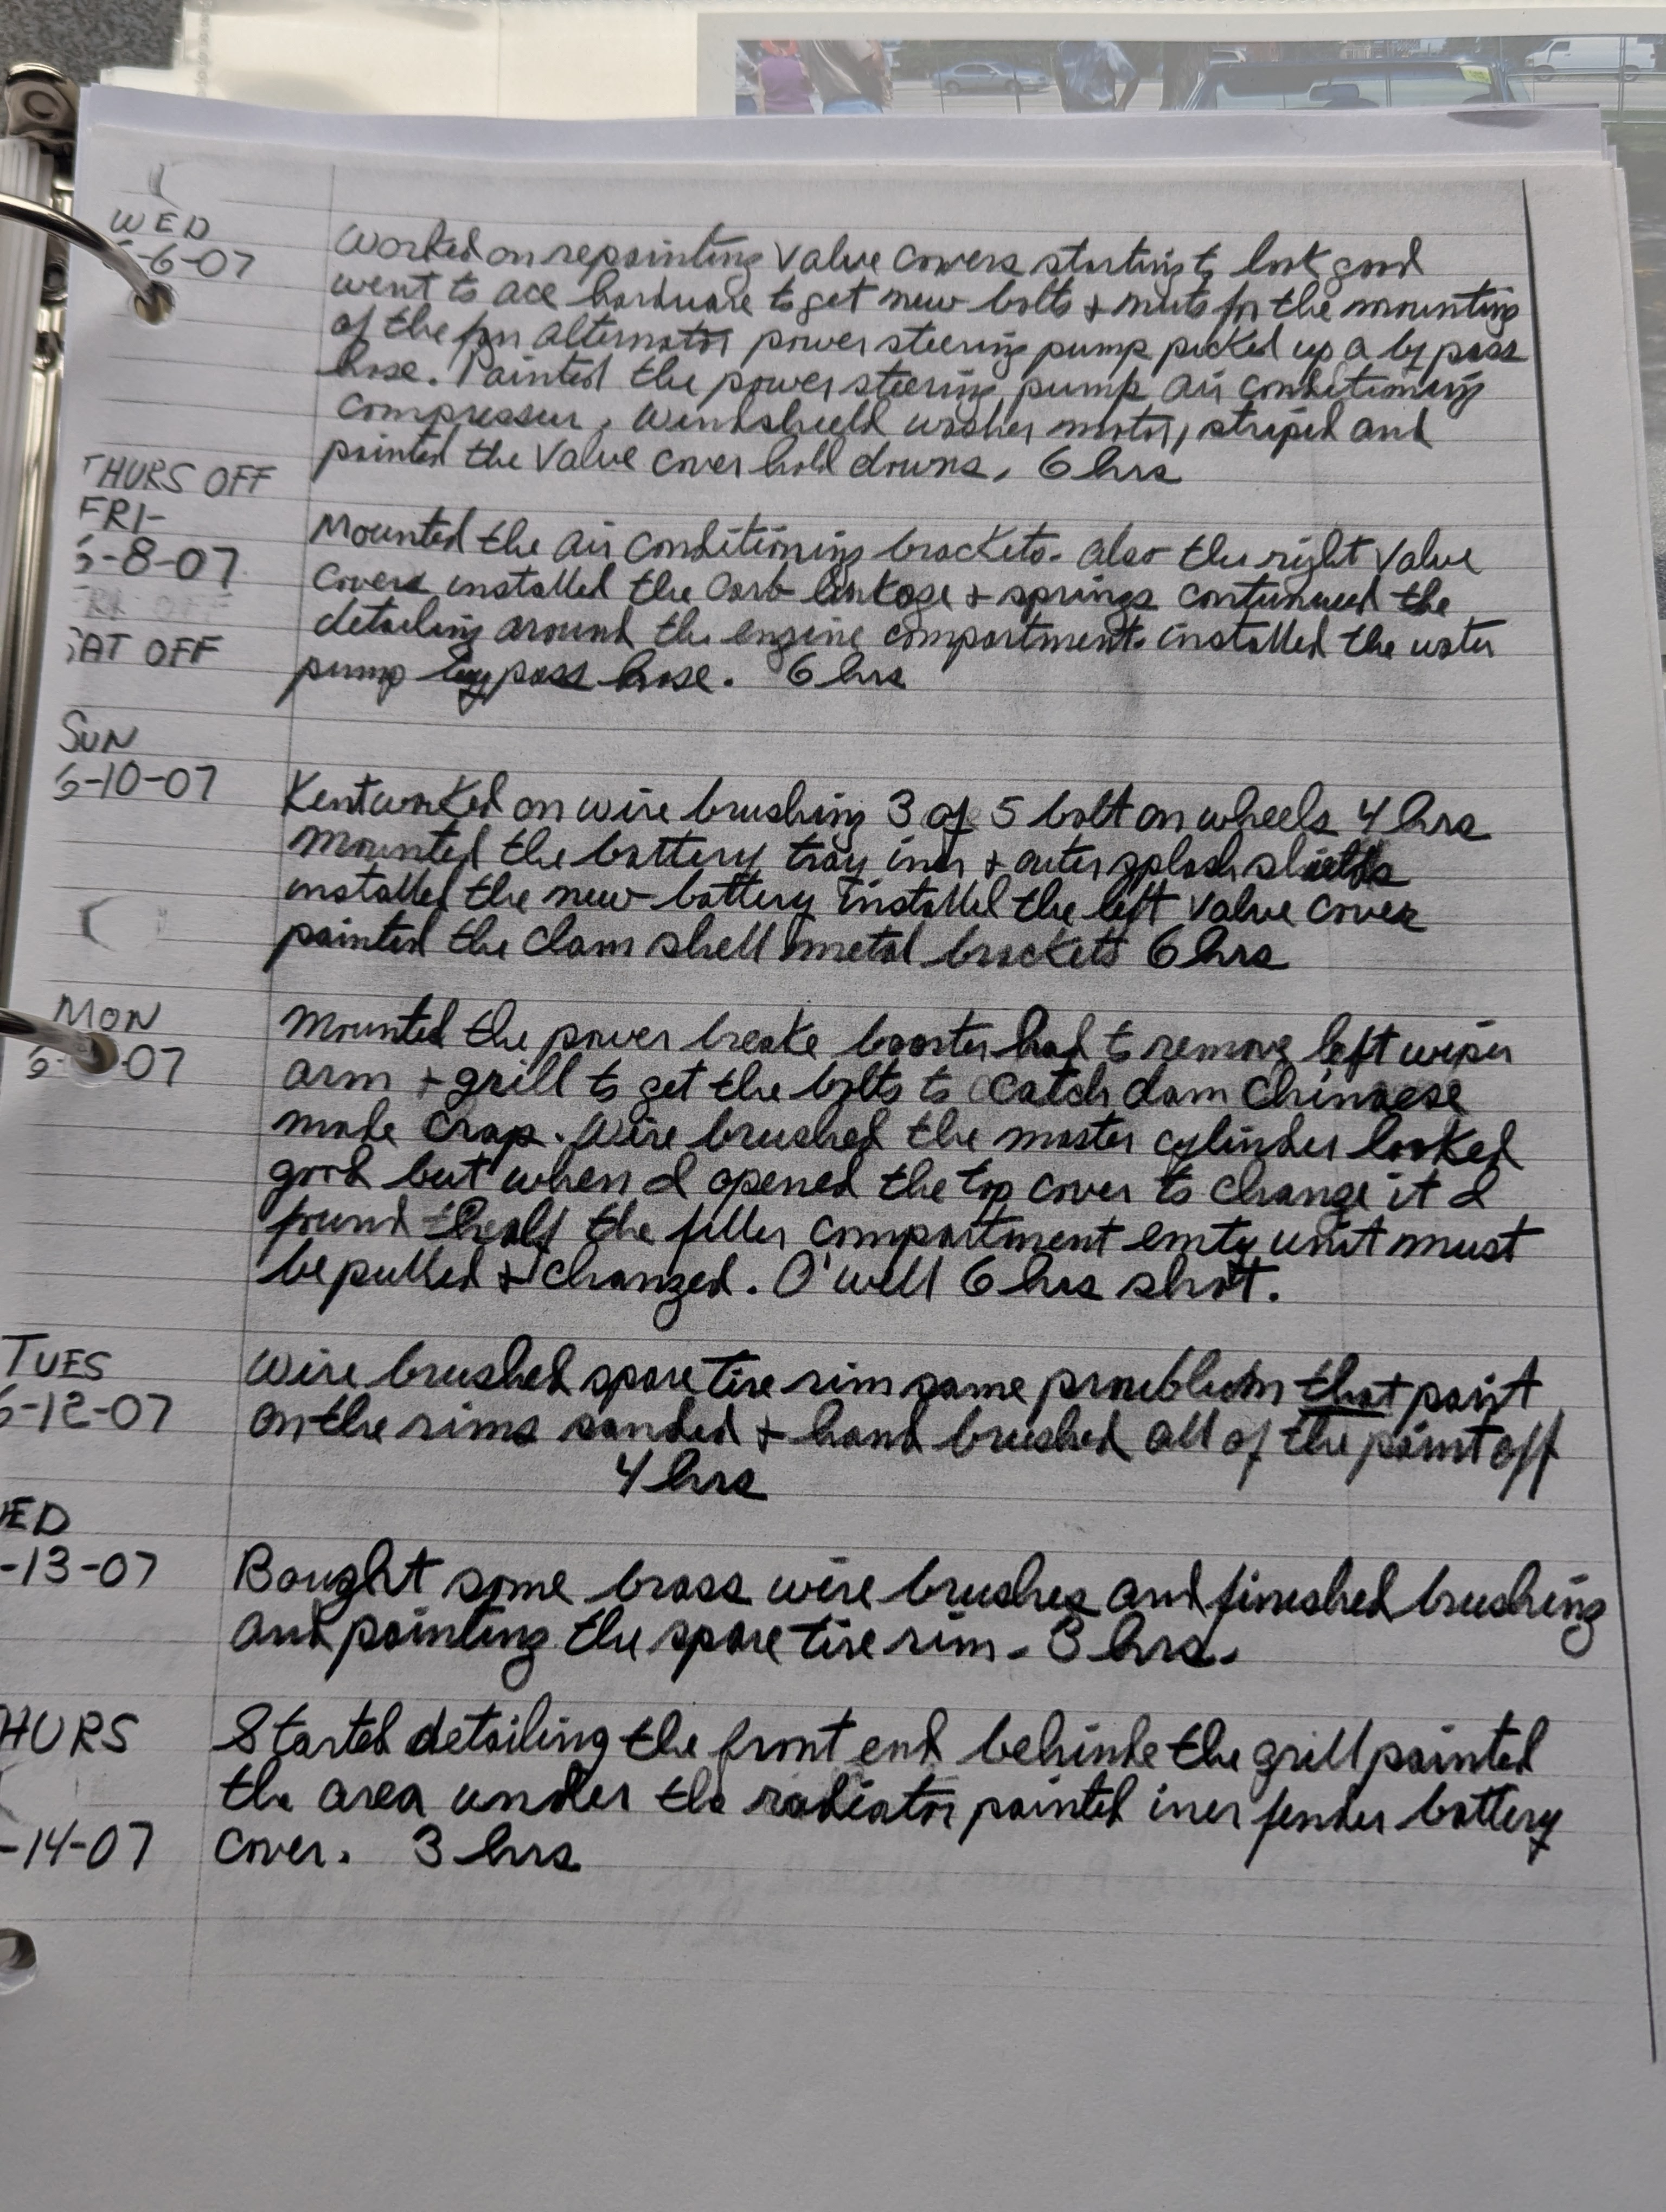 WED
-6-07
Worked on repainting Valve Covers starting to look good
went to ace hardware to get new bolts + nuts for the mounting
of the fan alternator power steering pump picked up a by pass
hose. Painted the power steering pump air conditioning
compressur, windshield washer motor, striped and
painted the Valve cover hold downs. 6 hrs
THURS OFF
FRI-
6-8-07
SAT OFF
Mounted the air conditioning brackets. also the right Valve
covers installed the carb linkage + springs contunued the
detailing around the engine compartment. installed the water
pump by pass hose. 6 hrs
SUN
6-10-07
Kent worked on wire brushing 3 of 5 bolt on wheels 4 hrs
mounted the battery tray iner + outer splash shields
installed the new battery installed the left Valve Cover
painted the clam shell metal brackets 6 hrs
MON
6- -07
Mounted the power breake booster had to remove left wiper
arm + grill to get the bolts to catch dam Chinaese
made Crap. Wire brushed the master cylinder looked
good but when I opened the top cover to change it I
found half the filler compartment emty unit must
be pulled + changed. O'well 6 hrs shot.
TUES
6-12-07
Wire brushed spare tire rim same problem that paint
on the rims sanded + hand brushed all of the paint off
4 hrs
ED
-13-07
Bought some brass wire brushes and finished brushing
and painting the spare tire rim. 3 hrs.
HURS
-14-07
Started detailing the front end behinde the grill painted
the area under the radiator painted iner fender battery
cover. 3 hrs